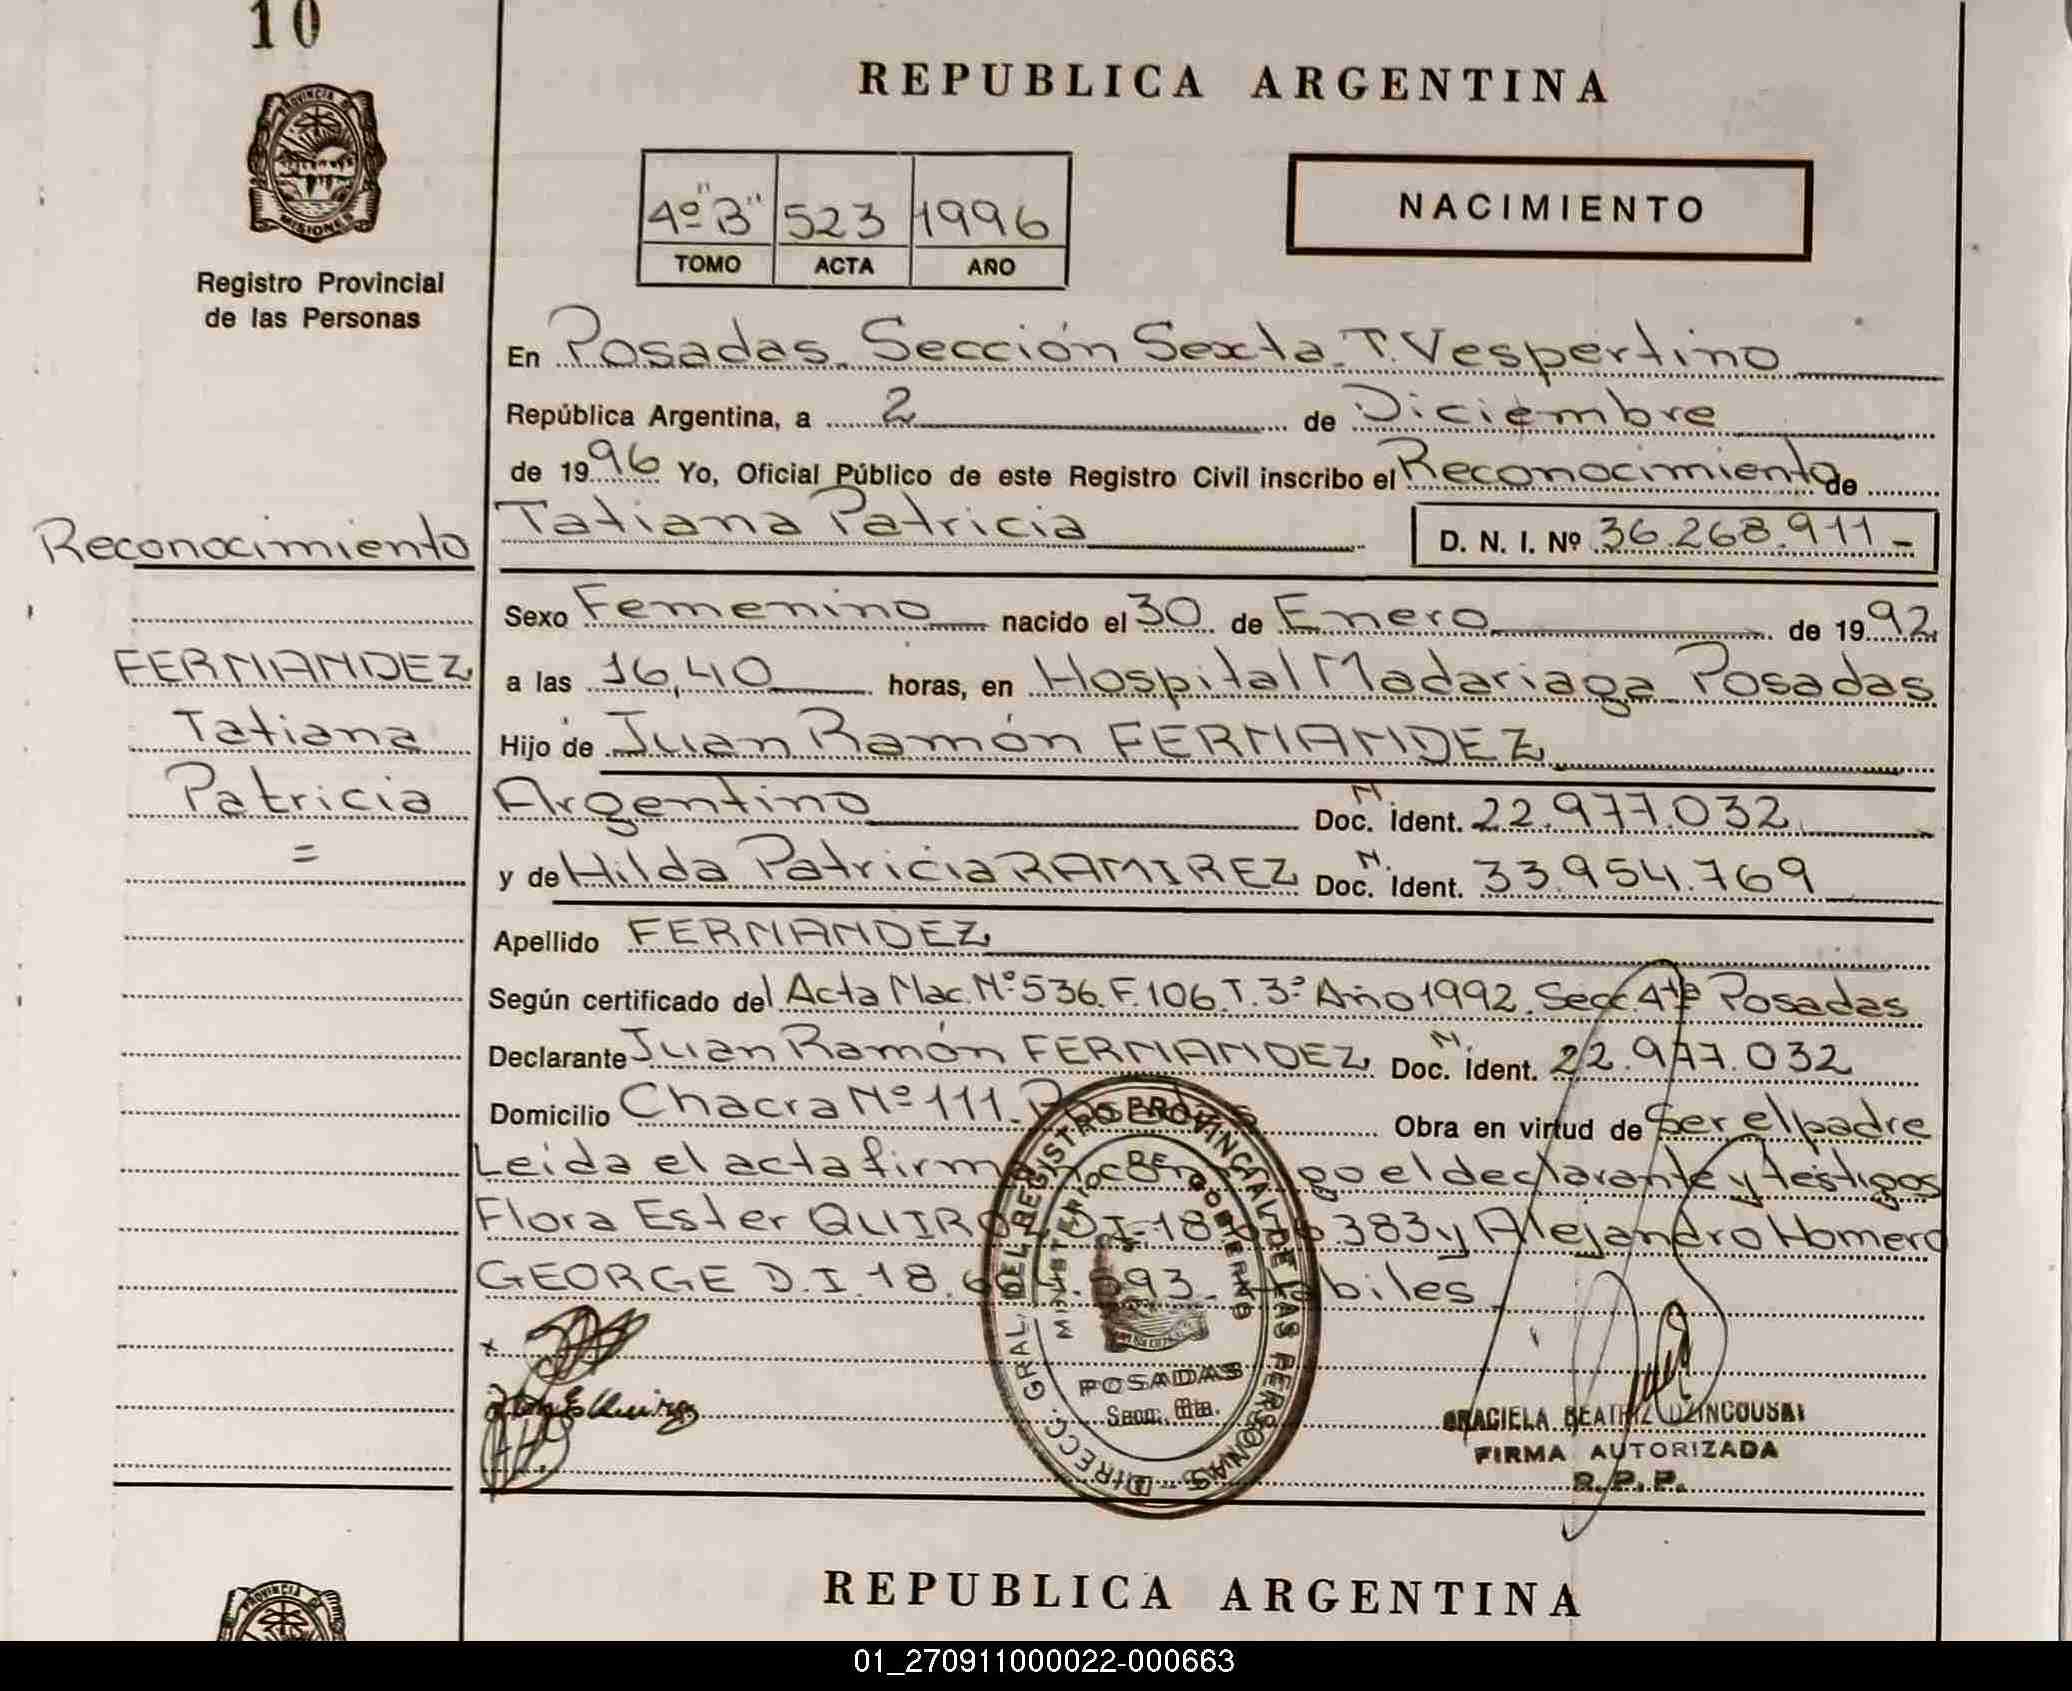 10
REPUBLICA ARGENTINA
PROVINCIA DE
MISIONES
Registro Provincial
de las Personas
4º "B" 523 1996
TOMO ACTA AÑO
NACIMIENTO
En Posadas Sección Sexta T. Vespertino
República Argentina, a 2 de Diciembre
de 1996 Yo, Oficial Público de este Registro Civil inscribo el Reconocimiento de
Tatiana Patricia D. N. I. Nº 36.268.911-
Reconocimiento
FERNANDEZ
Tatiana
Patricia
=
Sexo Femenino nacido el 30 de Enero de 1992
a las 16,40 horas, en Hospital Madariaga Posadas
Hijo de Juan Ramón FERNANDEZ
Argentino Doc. N. Ident. 22.977.032
y de Hilda Patricia RAMIREZ Doc. N. Ident. 33.954.769
Apellido FERNANDEZ
Según certificado del Acta Nac. Nº 536. F. 106. T. 3º Año 1992. Secc. 4ta Posadas
Declarante Juan Ramón FERNANDEZ Doc. N. Ident. 22.977.032
Domicilio Chacra Nº 111. Obra en virtud de Ser el padre
Leida el acta firma conmigo el declarante y testigos
Flora Ester QUIROZ D.I. 383 y Alejandro Homero
GEORGE D.I. 18. 093. Hábiles
x
DIRECC. GRAL. DEL REGISTRO PROVINCIAL DE LAS PERSONAS
MINISTERIO DE GOBIERNO
POSADAS
Secc. 6ta.
GRACIELA BEATRIZ DZINCOUSKI
FIRMA AUTORIZADA
R. P. P.
REPUBLICA ARGENTINA
PROVINCIA
01_270911000022-000663